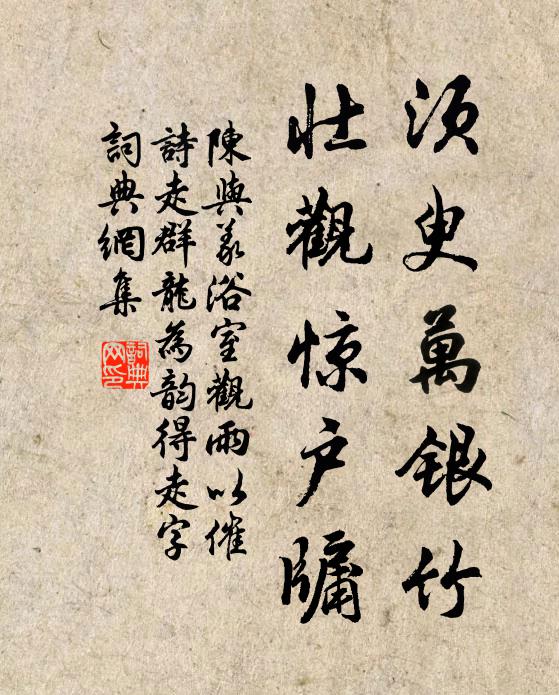 須臾萬銀竹
壯觀惊户牖
陳與義浴室觀雨以催
詩走群龍為韵得走字
詞典網集
詞典
网印